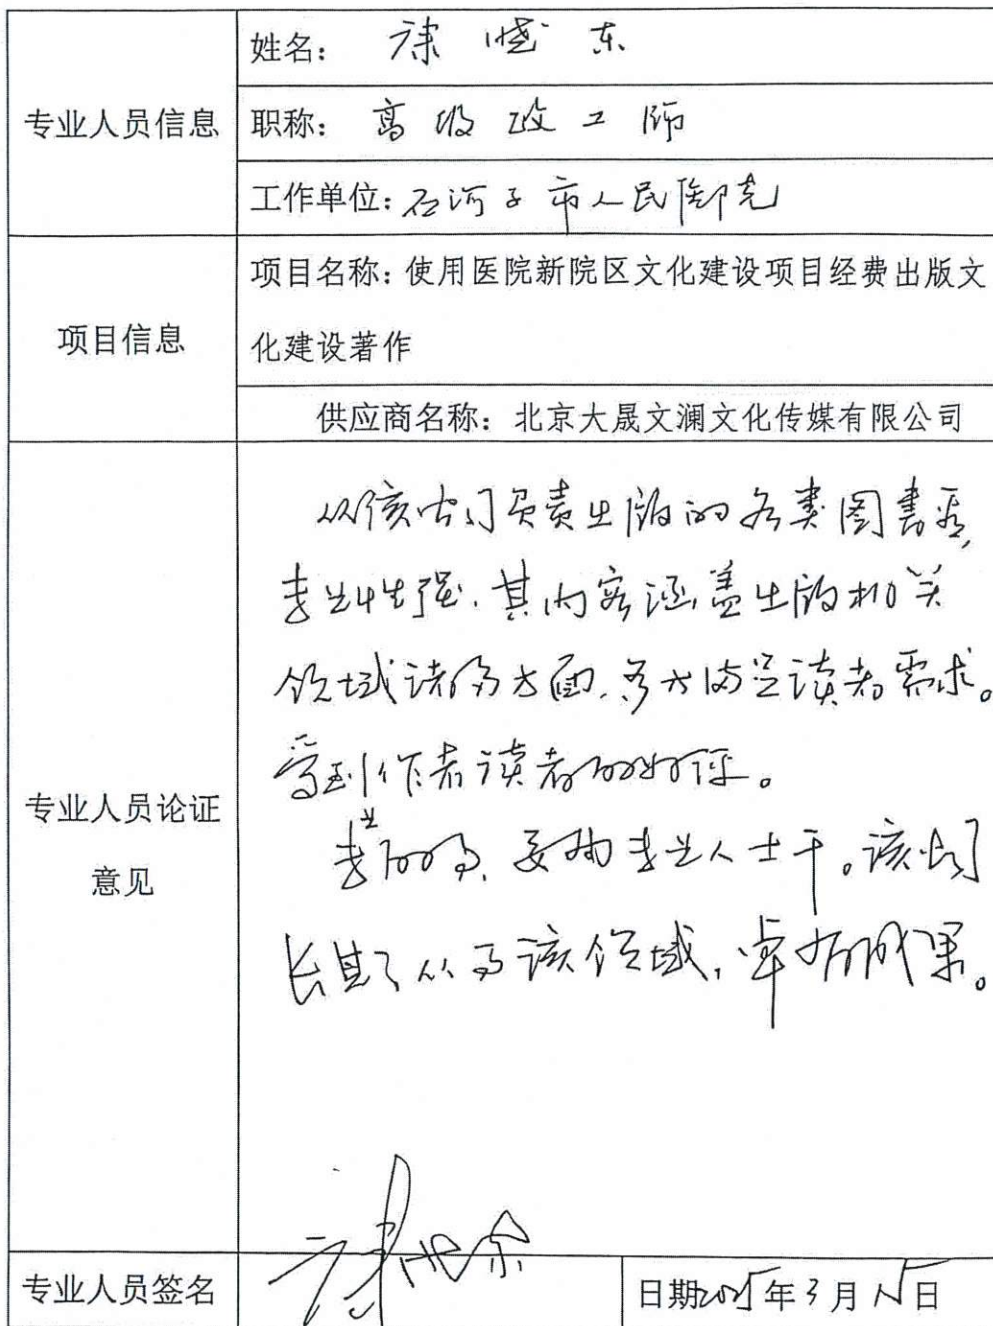 专业人员信息
姓名：康晓东
职称：高级政工师
工作单位：石河子市人民医院
项目信息
项目名称：使用医院新院区文化建设项目经费出版文
化建设著作
供应商名称：北京大晟文澜文化传媒有限公司
专业人员论证
意见
从该部门负责出版的各类图书看，
专业性强，其内容涵盖出版相关
领域诸多方面，多次满足读者需求。
受到作者读者的好评。
专业的事，要由专业人士干。该部门
长期从事该领域，卓有成果。
专业人员签名
日期2025年3月15日